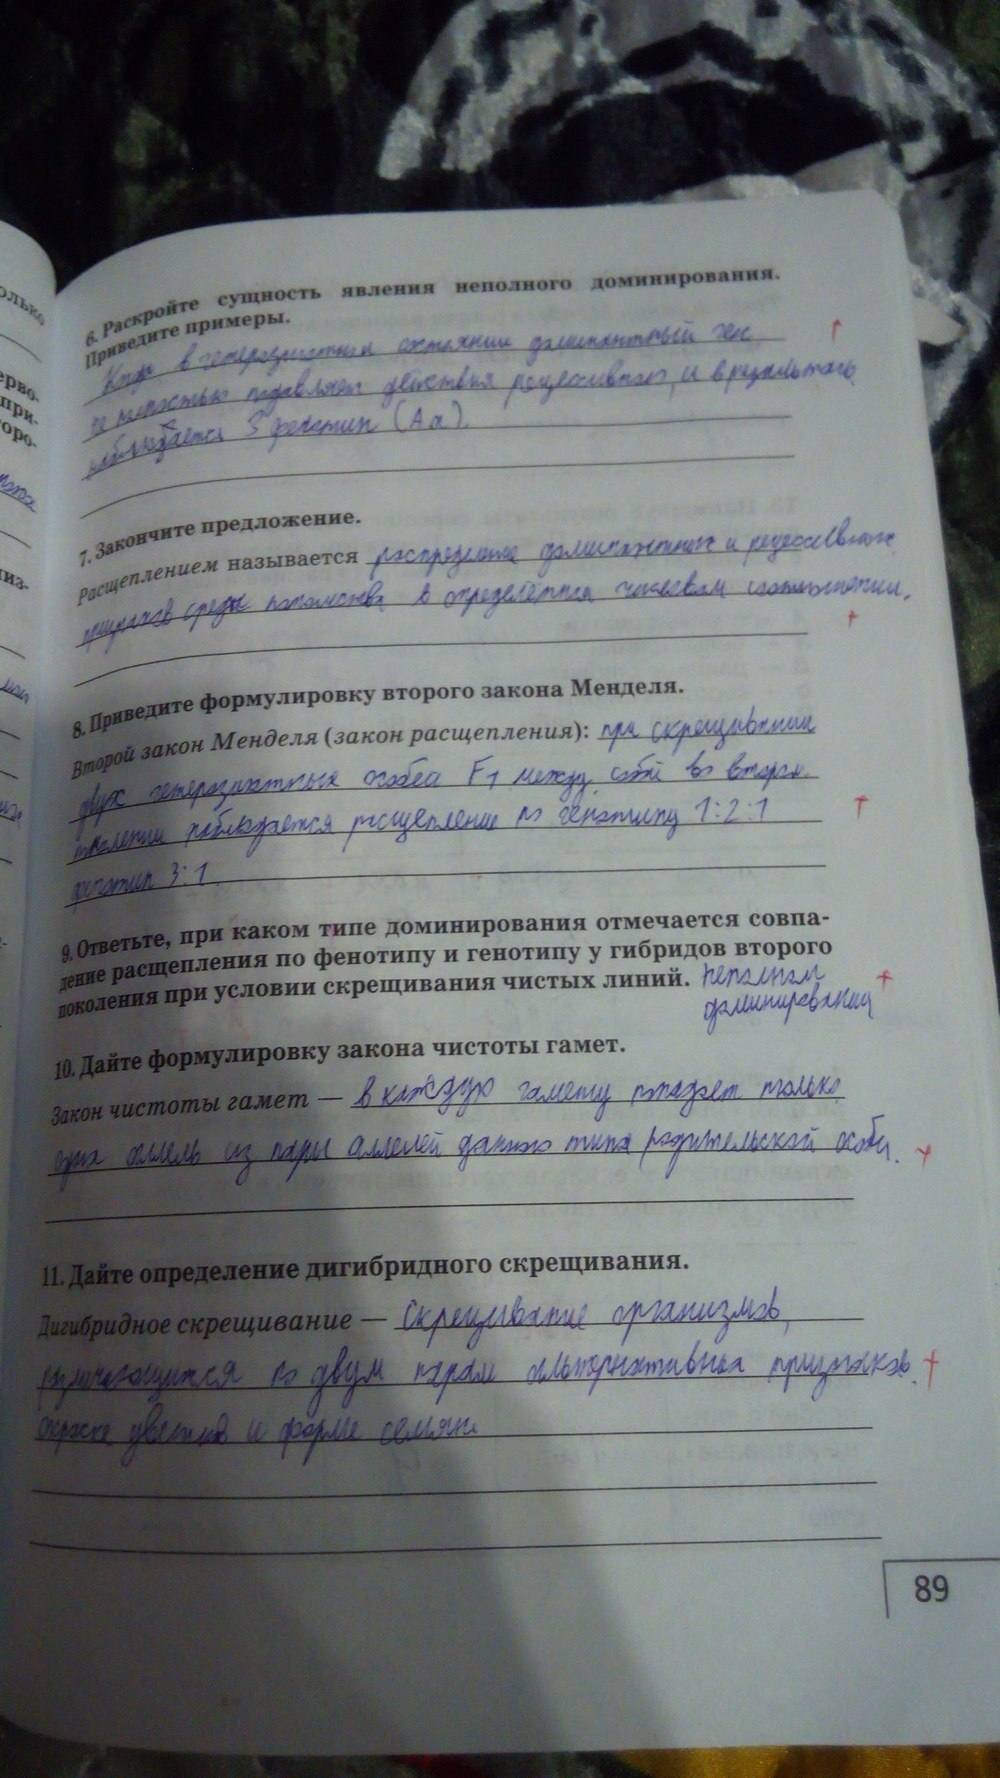 олько
6. Раскройте сущность явления неполного доминирования.
Приведите примеры.
Когда в гетерозиготном состоянии доминантный ген
не полностью подавляет действия рецессивного, и в результате
наблюдается 3 фенотип (Аа).
ерво-
при-
торо-
7. Закончите предложение.
Расщеплением называется распределение доминантных и рецессивных
признаков среди потомства в определённом числовом соотношении.
низ-
8. Приведите формулировку второго закона Менделя.
Второй закон Менделя (закон расщепления): при скрещивании
двух гетерозиготных особей F1 между собой во втором
поколении наблюдается расщепление по генотипу 1:2:1
фенотип 3:1
9. Ответьте, при каком типе доминирования отмечается совпа-
дение расщепления по фенотипу и генотипу у гибридов второго
поколения при условии скрещивания чистых линий. неполном
доминировании
10. Дайте формулировку закона чистоты гамет.
Закон чистоты гамет — в каждую гамету попадает только
одна аллель из пары аллелей данного типа родительской особи.
11. Дайте определение дигибридного скрещивания.
Дигибридное скрещивание — Скрещивание организмов,
различающихся по двум парам альтернативных признаков.
окраске цветков и форме семян
89